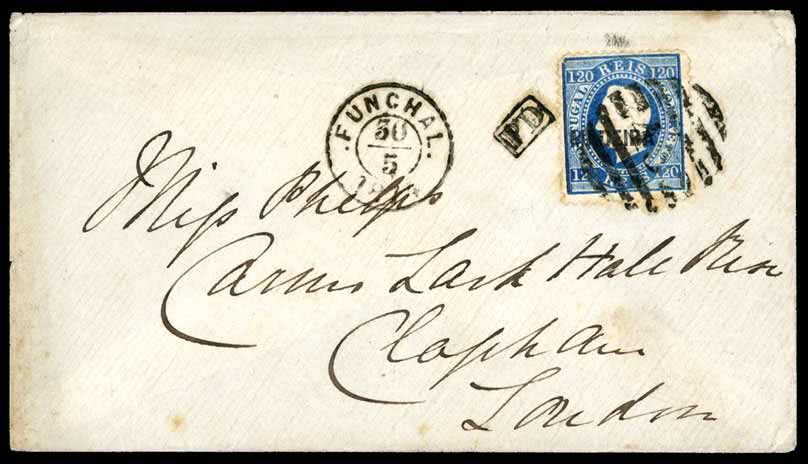 120 REIS 120
PORTUGAL
MADEIRA
120 REIS 120
FUNCHAL.
30
5
PD
Miss Phelps
Larkhall Rise
Clapham
London